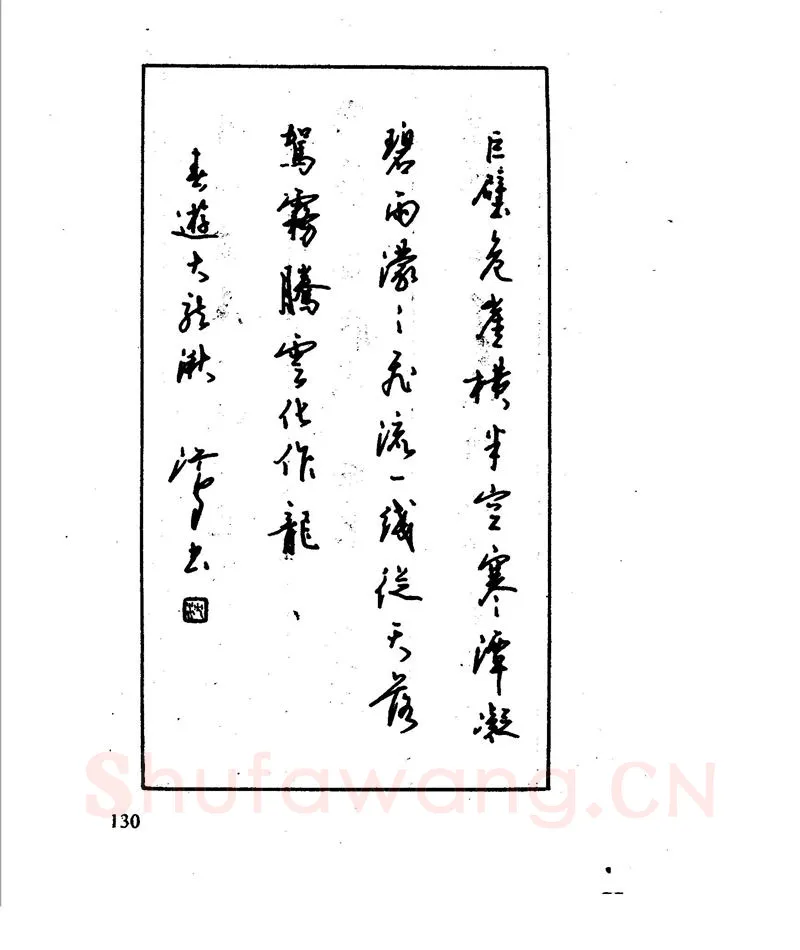 巨壁危崖橫半空寒潭凝
碧雨濛〻飛流一线從天落
駕霧騰雲化作龍
春遊大龙湫
书
130
Shufawang.CN